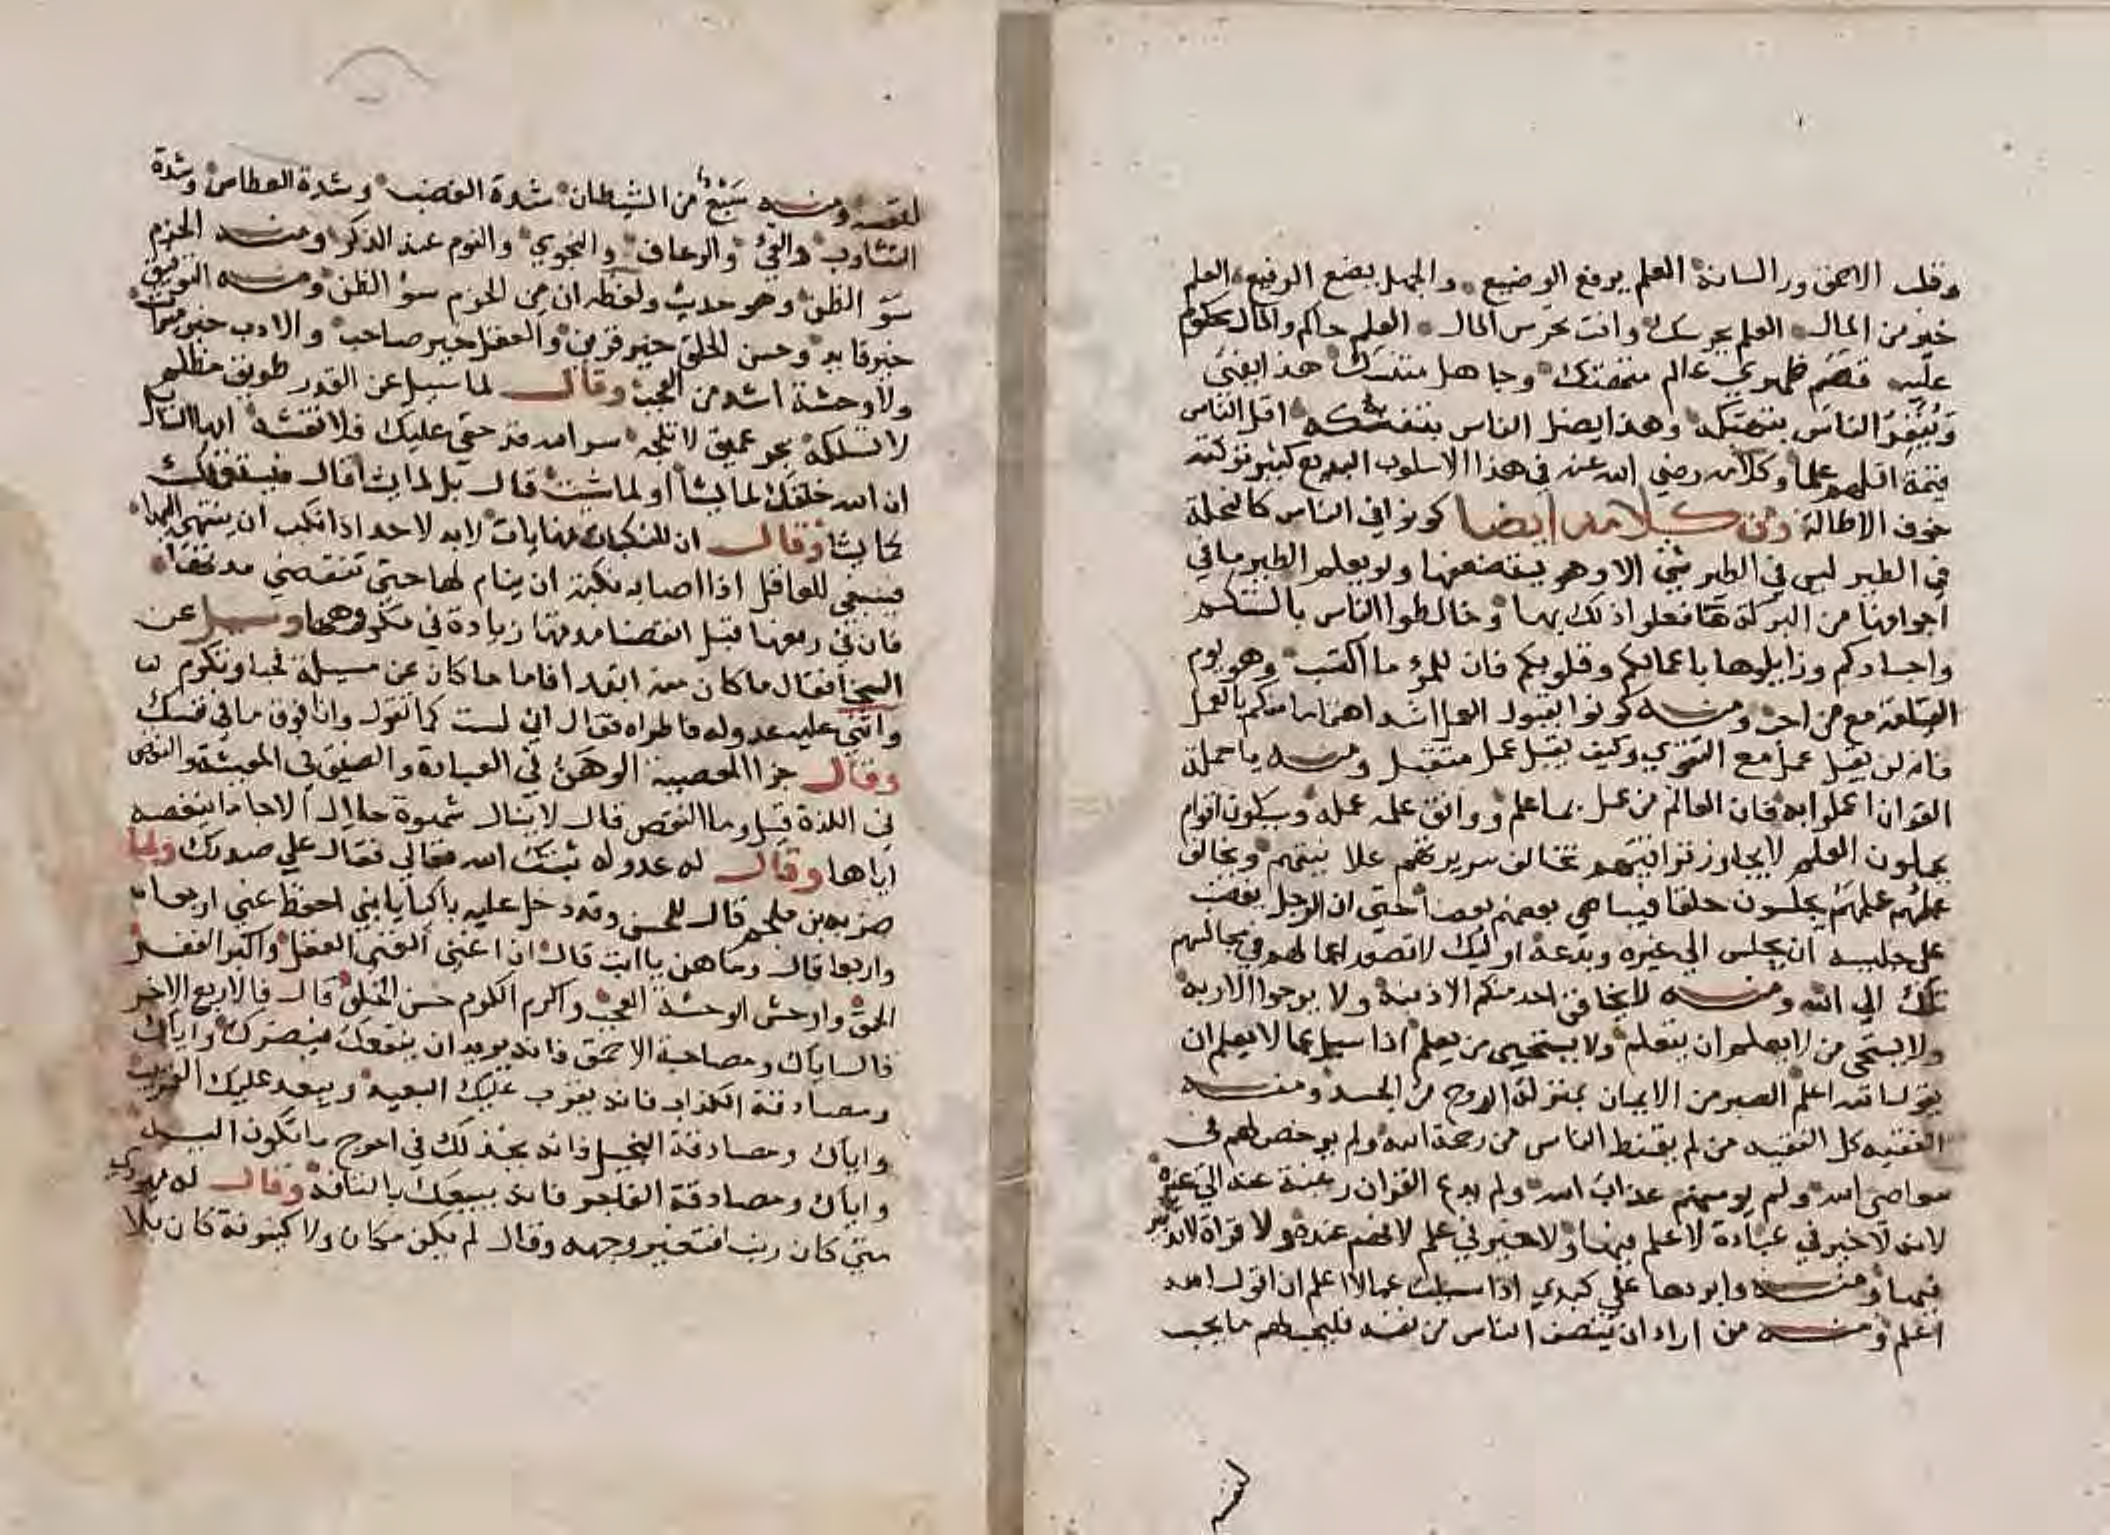 وقلب الاحمق ورا لسانه العلم يرفع الوضيع والجهل يضع الرفيع العلم
خير من المال العلم يحرسك وانت تحرس المال العلم حاكم والمال محكوم
عليه قصم ظهري عالم متهتك وجاهل متنسك هذا يفتي
وينفر الناس بتهتكه وهذا يضل الناس بتنسكه اقل الناس
قيمة اقلهم علما وكلامه رضي الله عنه في هذا الاسلوب البديع كثير تركته
خوف الاطالة ومن كلامه ايضا كونوا في الناس كالنحلة
في الطير ليس في الطير شي الا وهو يستضعفها ولو يعلم الطير ما في
اجوافها من البركة ما فعلوا ذلك بها وخالطوا الناس بالسنتكم
واجسادكم وزايلوها باعمالكم وقلوبكم فان للمرء ما اكتسب وهو يوم
القيامة مع من احب ومنه كونوا بقبول العمل اشد اهتماما منكم بالعمل
فانه لن يقبل عمل مع التقوي وكيف يقبل عمل متقبل ومنه يا حملة
القران اعملوا به فان العالم من عمل بما علم ووافق علمه عمله وسيكون اقوام
يحملون العلم لا يجاوز تراقيهم تخالف سريرتهم علانيتهم ويخالف
عملهم علمهم يجلسون حلقا فيباهي بعضهم بعضا حتي ان الرجل يغضب
على جليسه ان يجلس الي غيره ويدعه اوليك لا تصعد اعمالهم في مجالسهم
تلك الي الله ومنه لا يخافن احد منكم الا ذنبه ولا يرجوا الا ربه
ولا يستحي من لا يعلم ان يتعلم ولا يستحيي من يعلم اذا سيل عما لا يعلم ان
يقول الله اعلم الصبر من الايمان بمنزلة الروح من الجسد ومنه
الفقيه كل الفقيه من لم يقنط الناس من رحمة الله ولم يرخص لهم في
معاصي الله ولم يومنهم عذاب الله ولم يدع القران رغبة عنه الي غيره
لانه لا خير في عبادة لا علم فيها ولا خير في علم لا فهم عنده ولا قراة لا تدبر
فيها ومنه وابردها علي كبدي اذا سيلت عما لا اعلم ان اقول الله
اعلم ومنه من اراد ان ينصف الناس من نفسه فليحب لهم ما يحب
لنفسه
لنفسه ومنه سبع من الشيطان شدة الغضب وشدة العطاس وشدة
التثاوب والقي والرعاف والنجوي والنوم عند الذكر ومنه الحزم
سو الظن وهو حديث ولفظه ان من الحزم سو الظن ومنه التوفيق
خير قايد وحسن الخلق خير قرين والعقل خير صاحب والادب خير ميراث
ولا وحشة اشد من العجب وقال لما سيل عن القدر طريق مظلم
لا تسلكه بحر عميق لا تلجه سر الله قد خفي عليك فلا تفتشه ايها السايل
ان الله خلقك لما يشا او لما شيت قال بل لما يشا قال فيستعملك
كما يشا وقال ان للنكبات نهايات لا بد لاحد اذا نكب ان ينتهي اليها
فينبغي للعاقل اذا اصابه نكبة ان ينام لها حتي تنقضي مدتها
فان في رفعها قبل انقضا مدتها زيادة في مكروهها وسيل عن
السخا فقال ما كان منه ابتدا فاما ما كان عن مسيلة فحيا وتكرم
واثني عليه عدو له فاطراه فقال اني لست كما تقول وانا فوق ما في نفسك
وقال جزا المعصية الوهن في العبادة والضيق في المعيشة والنقص
في اللذة قيل وما النقص قال لا ينال شهوة حلال الا جا ما ينغصه
اياها وقال له عدو له ثبتك الله فقال علي صدرك ولما
ضربه بن ملجم قال للحسن وقد دخل عليه باكيا يا بني احفظ عني اربعا
واربعا قال وما هن يا ابت قال ان اغني الغني العقل واكبر الفقر
الحمق واوحش الوحشة العجب واكرم الكرم حسن الخلق قال فالاربع الاخر
قال اياك ومصاحبة الاحمق فانه يريد ان ينفعك فيضرك واياك
ومصادقة الكذاب فانه يقرب عليك البعيد ويبعد عليك القريب
واياك ومصادقة البخيل فانه يخذلك في احوج ما تكون اليه
واياك ومصادقة الفاجر فانه يبيعك بالتافه وقال له يهودي
متي كان ربنا فتغير وجهه وقال لم يكن مكان ولا كينونة كان بلا